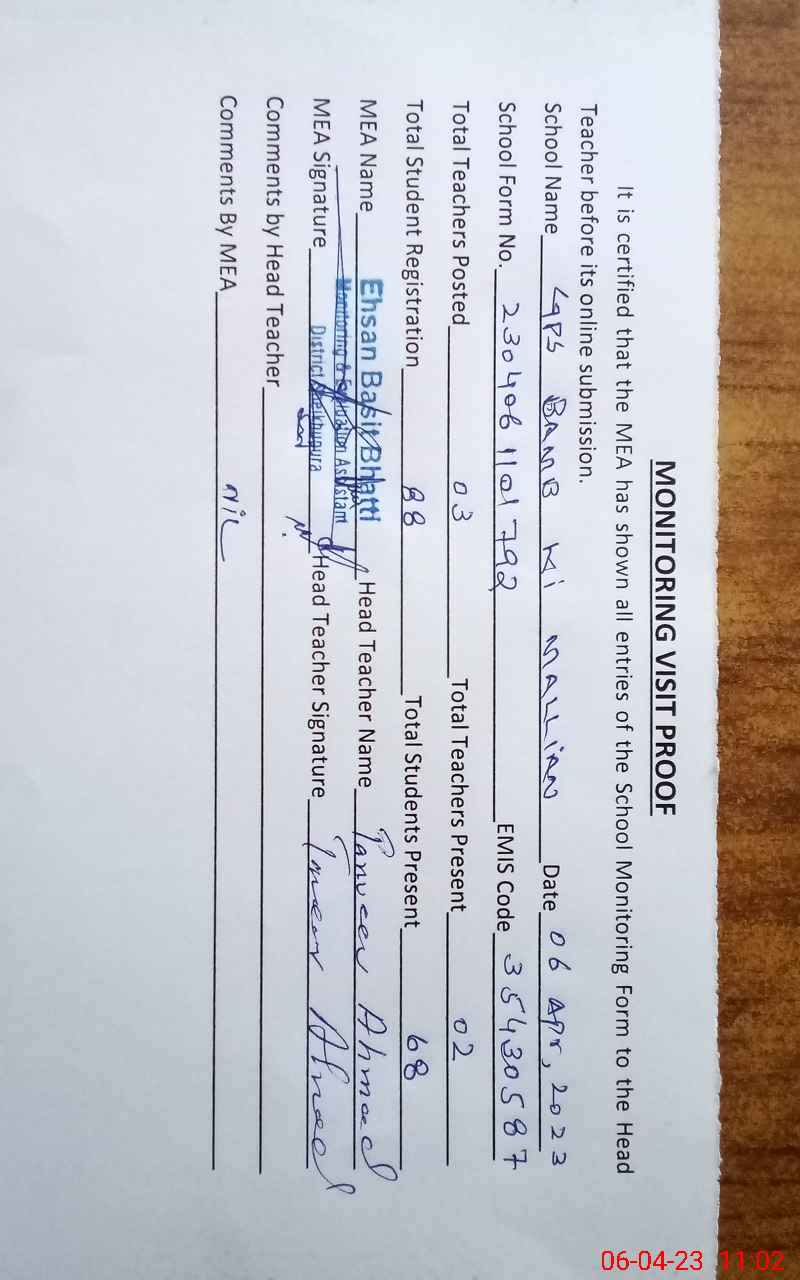 MONITORING VISIT PROOF
It is certified that the MEA has shown all entries of the School Monitoring Form to the Head
Teacher before its online submission.
School Name GPS BAMB Ki MALLiAN Date 06 Apr, 2023
School Form No. 2304061101792 EMIS Code 35430587
Total Teachers Posted 03 Total Teachers Present 02
Total Student Registration 88 Total Students Present 68
MEA Name Ehsan Basit Bhatti Head Teacher Name Tanveer Ahmed
Monitoring & Evaluation Assistant
District Sheikhupura
MEA Signature Head Teacher Signature Tanveer Ahmed
Comments by Head Teacher
Comments By MEA NiL
06-04-23 11:02